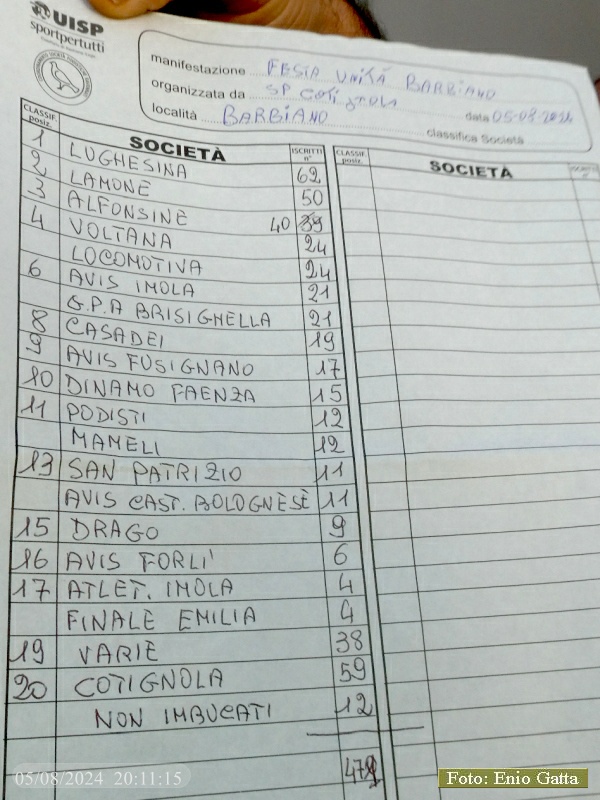 UISP
sportpertutti
manifestazione FESTA UNITÀ BARBIANO
organizzata da SP COTIGNOLA data 05-08-2024
località BARBIANO classifica Società
CLASSIF. posiz. SOCIETÀ ISCRITTI n° CLASSIF. posiz. SOCIETÀ ISCRITTI n°
1 LUGHESINA 62
2 LAMONE 50
3 ALFONSINE 40 39
4 VOLTANA 24
LOCOMOTIVA 24
6 AVIS IMOLA 21
G.P.A BRISIGHELLA 21
8 CASADEI 19
9 AVIS FUSIGNANO 17
10 DINAMO FAENZA 15
11 PODISTI 12
MAMELI 12
13 SAN PATRIZIO 11
AVIS CAST. BOLOGNESE 11
15 DRAGO 9
16 AVIS FORLI' 6
17 ATLET. IMOLA 4
FINALE EMILIA 4
19 VARIE 38
20 COTIGNOLA 59
NON IMBUCATI 12
05/08/2024 20:11:15
Foto: Enio Gatta